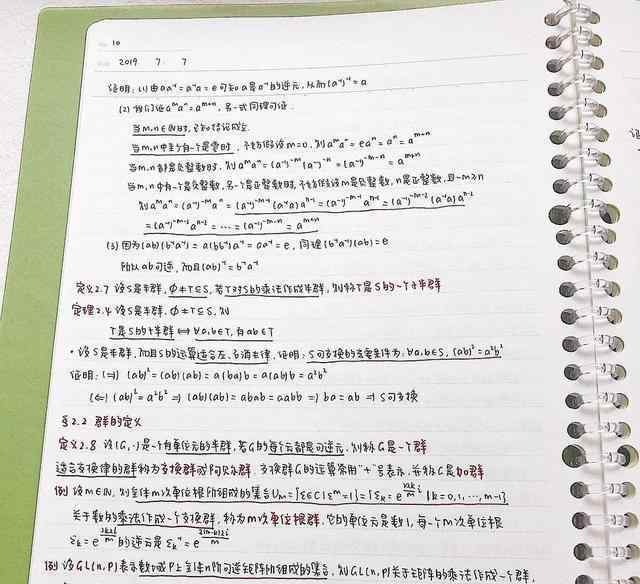 No. 10
2019 7 7
证明:(1)由aa⁻¹=a⁻¹a=e可知a是a⁻¹的逆元,从而(a⁻¹)⁻¹=a
(2)我们证aᵐaⁿ=aᵐ⁺ⁿ,另一式同理可证.
当m,n∈ℕ时,已知结论成立.
当m,n中至少有一个是零时,不妨假设m=0,则aᵐaⁿ=eaⁿ=aⁿ=aᵐ⁺ⁿ
当m,n都是负整数时,则aᵐaⁿ=(a⁻¹)⁻ᵐ(a⁻¹)⁻ⁿ=(a⁻¹)⁻ᵐ⁻ⁿ=aᵐ⁺ⁿ
当m,n中有一个是负整数,另一个是正整数时,不妨假设m是负整数,n是正整数,且-m≥n
则aᵐaⁿ=(a⁻¹)⁻ᵐaⁿ=(a⁻¹)⁻ᵐ⁻¹(a⁻¹a)aⁿ⁻¹=(a⁻¹)⁻ᵐ⁻¹aⁿ⁻¹=(a⁻¹)⁻ᵐ⁻²(a⁻¹a)aⁿ⁻²
=(a⁻¹)⁻ᵐ⁻²aⁿ⁻²=…=(a⁻¹)⁻ᵐ⁻ⁿ=aᵐ⁺ⁿ
(3)因为(ab)(b⁻¹a⁻¹)=a(bb⁻¹)a⁻¹=aa⁻¹=e,同理(b⁻¹a⁻¹)(ab)=e
所以ab可逆,而且(ab)⁻¹=b⁻¹a⁻¹
定义2.7 设S是半群,∅≠T⊆S,若T对S的乘法作成半群,则称T是S的一个子半群
定理2.4 设S是半群,∅≠T⊆S,则
T是S的子半群⟺∀a,b∈T,有ab∈T
·设S是半群,而且S的运算适合左、右消去律,证明:S可交换的充要条件为:∀a,b∈S,(ab)²=a²b²
证明:(⇒)(ab)²=(ab)(ab)=a(ba)b=a(ab)b=a²b²
(⇐)(ab)²=a²b²⇒(ab)(ab)=abab=aabb⇒ba=ab⇒S可交换
§2.2 群的定义
定义2.8 设(G,·)是一个有单位元的半群,若G的每个元都是可逆元,则称G是一个群
适合交换律的群称为交换群或阿贝尔群.交换群G的运算常用"+"号表示,并称G是加群
例 设m∈ℕ,则全体m次单位根所组成的集合Uₘ={ε∈ℂ|εᵐ=1}={εₖ=e^(2kπi/m)|k=0,1,…,m-1}
关于数的乘法作成一个交换群,称为m次单位根群,它的单位元是数1,每一个m次单位根
εₖ=e^(2kπi/m)的逆元是εₖ⁻¹=e^(2(m-k)πi/m)
例 设GL(n,P)表示数域P上全体n阶可逆矩阵所组成的集合,则GL(n,P)关于矩阵的乘法作成一个群,